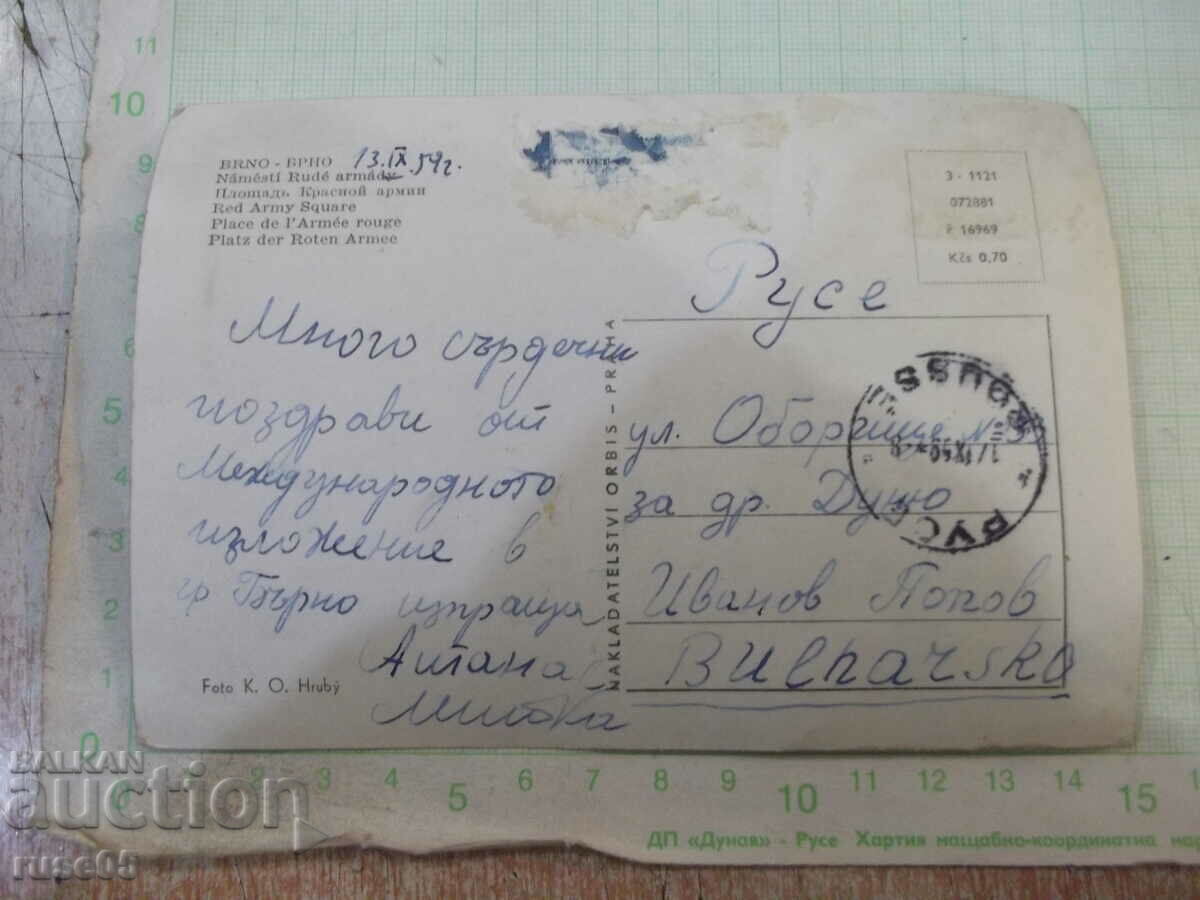 BRNO - БРНО 13.IX.59г.
Náměstí Rudé armády
Площадь Красной армии
Red Army Square
Place de l'Armée rouge
Platz der Roten Armee
3 - 1121
072881
F 16969
Kčs 0,70
Много сърдечни
поздрави от
Международното
изложение в
гр Бърно изпраща
Атана
Митка
Foto K. O. Hrubý
NAKLADATELSTVÍ ORBIS - PRAHA
Русе
ул. Оборище № 3
за др. Дуню
Иванов Попов
Bulharsko
ROUSSE
РУСЕ
BALKAN
auction
ruse05
ДП «Дунав» - Русе Хартия мащабно-координатна
11
10
9
8
7
6
5
4
3
2
1
0
0 1 2 3 4 5 6 7 8 9 10 11 12 13 14 15